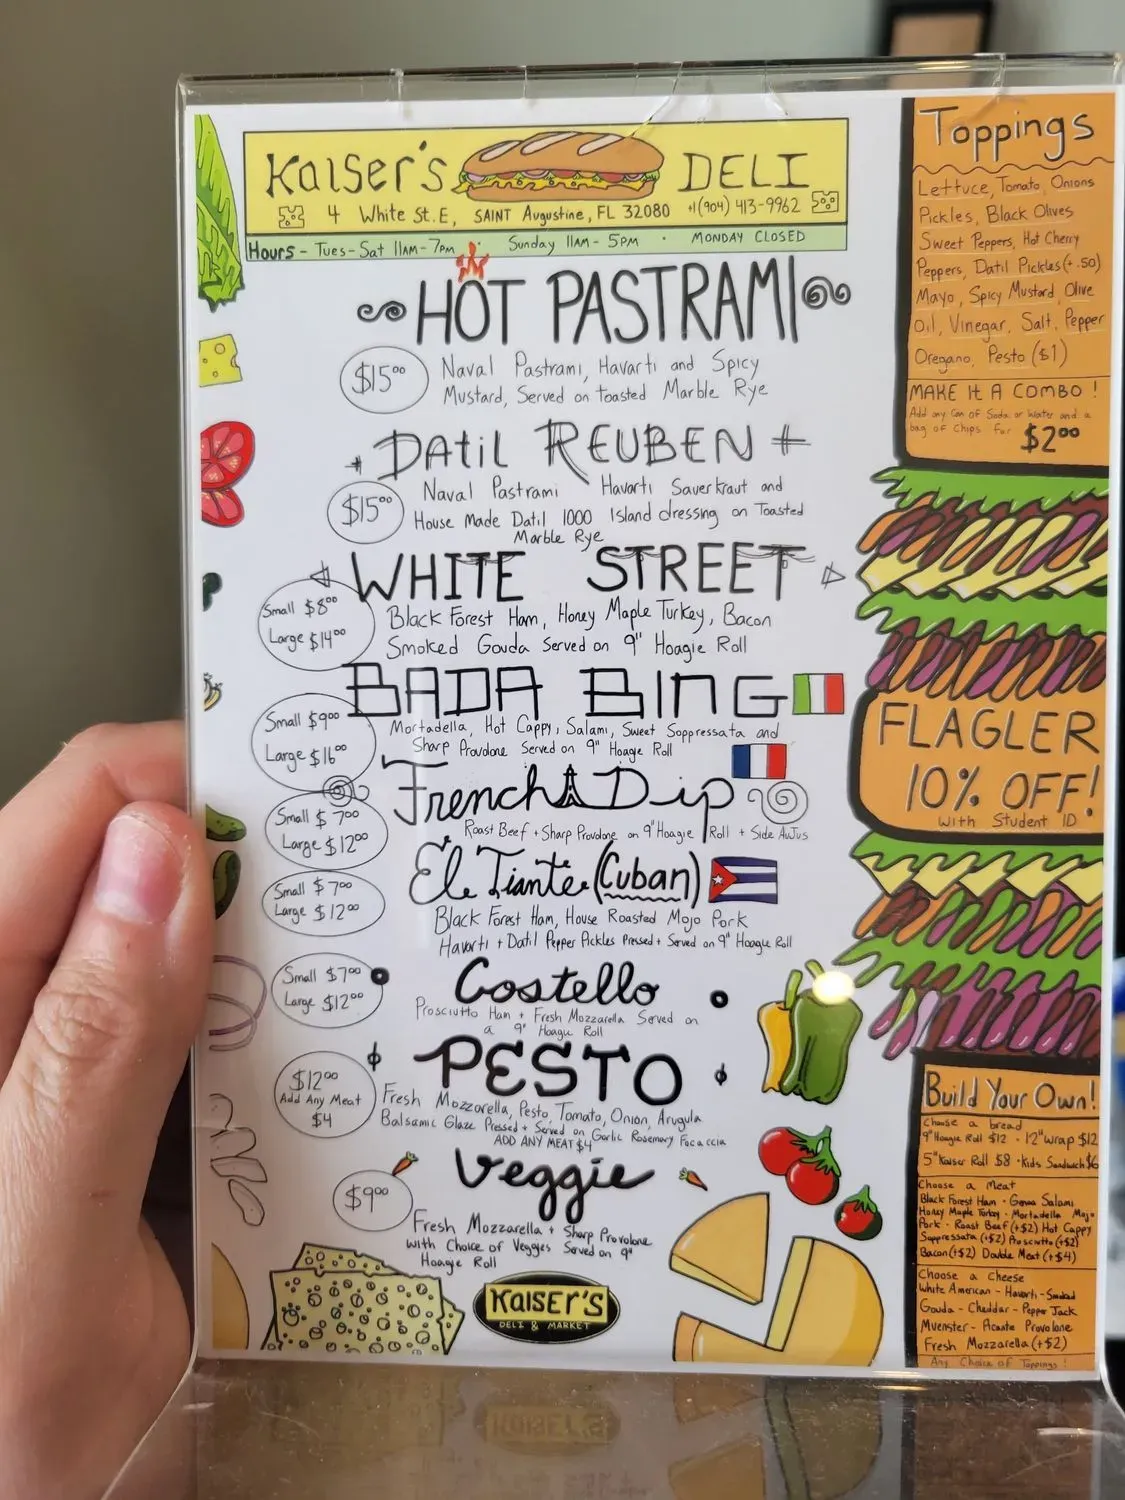 Kaiser's DELI
4 White St. E, SAINT Augustine, FL 32080 +1(904) 413-9962
Hours - Tues-Sat 11AM-7PM · Sunday 11AM-5PM · MONDAY CLOSED
HOT PASTRAMI
$15.00
Naval Pastrami, Havarti and Spicy
Mustard, Served on toasted Marble Rye
DATIL REUBEN
$15.00
Naval Pastrami Havarti Sauerkraut and
House Made Datil 1000 Island dressing on Toasted
Marble Rye
WHITE STREET
Small $8.00
Large $14.00
Black Forest Ham, Honey Maple Turkey, Bacon
Smoked Gouda Served on 9" Hoagie Roll
BADA BING
Small $9.00
Large $16.00
Mortadella, Hot Cappy, Salami, Sweet Soppressata and
Sharp Provolone Served on 9" Hoagie Roll
French Dip
Small $7.00
Large $12.00
Roast Beef + Sharp Provolone on 9" Hoagie Roll + Side AuJus
El Tiante (Cuban)
Small $7.00
Large $12.00
Black Forest Ham, House Roasted Mojo Pork
Havarti + Datil Pepper Pickles Pressed + Served on 9" Hoagie Roll
Costello
Small $7.00
Large $12.00
Prosciutto Ham + Fresh Mozzarella Served on
a 9" Hoagie Roll
PESTO
$12.00
Add Any Meat
$4
Fresh Mozzarella, Pesto, Tomato, Onion, Arugula
Balsamic Glaze Pressed + Served on Garlic Rosemary Focaccia
ADD ANY MEAT $4
Veggie
$9.00
Fresh Mozzarella + Sharp Provolone
with Choice of Veggies Served on 9"
Hoagie Roll
KAISER'S
DELI & MARKET
Toppings
Lettuce, Tomato, Onions
Pickles, Black Olives
Sweet Peppers, Hot Cherry
Peppers, Datil Pickles (+.50)
Mayo, Spicy Mustard, Olive
Oil, Vinegar, Salt, Pepper
Oregano, Pesto ($1)
MAKE It A COMBO!
Add any Can of Soda or Water and a
bag of Chips for $2.00
FLAGLER
10% OFF!
with Student ID
Build Your Own!
Choose a bread
9" Hoagie Roll $12 · 12" Wrap $12
5" Kaiser Roll $8 · Kids Sandwich $6
Choose a Meat
Black Forest Ham · Genoa Salami
Honey Maple Turkey · Mortadella Mojo
Pork · Roast Beef (+$2) Hot Cappy
Soppressata (+$2) Prosciutto (+$2)
Bacon (+$2) Double Meat (+$4)
Choose a Cheese
White American - Havarti - Smoked
Gouda - Cheddar - Pepper Jack
Muenster - Acute Provolone
Fresh Mozzarella (+$2)
Any Choice of Toppings!